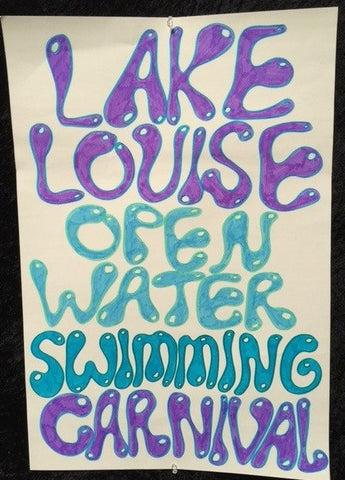 LAKE
LOUISE
OPEN
WATER
SWIMMING
CARNIVAL